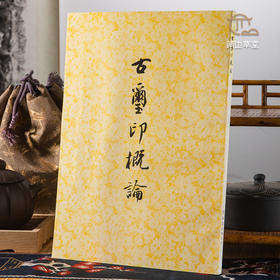 古璽印概論